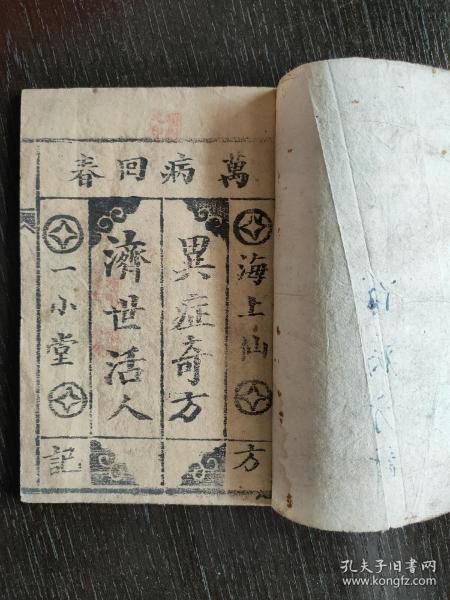 萬病回春
海上仙方
異症奇方
濟世活人
一小堂記
孔夫子旧书网
www.kongfz.com